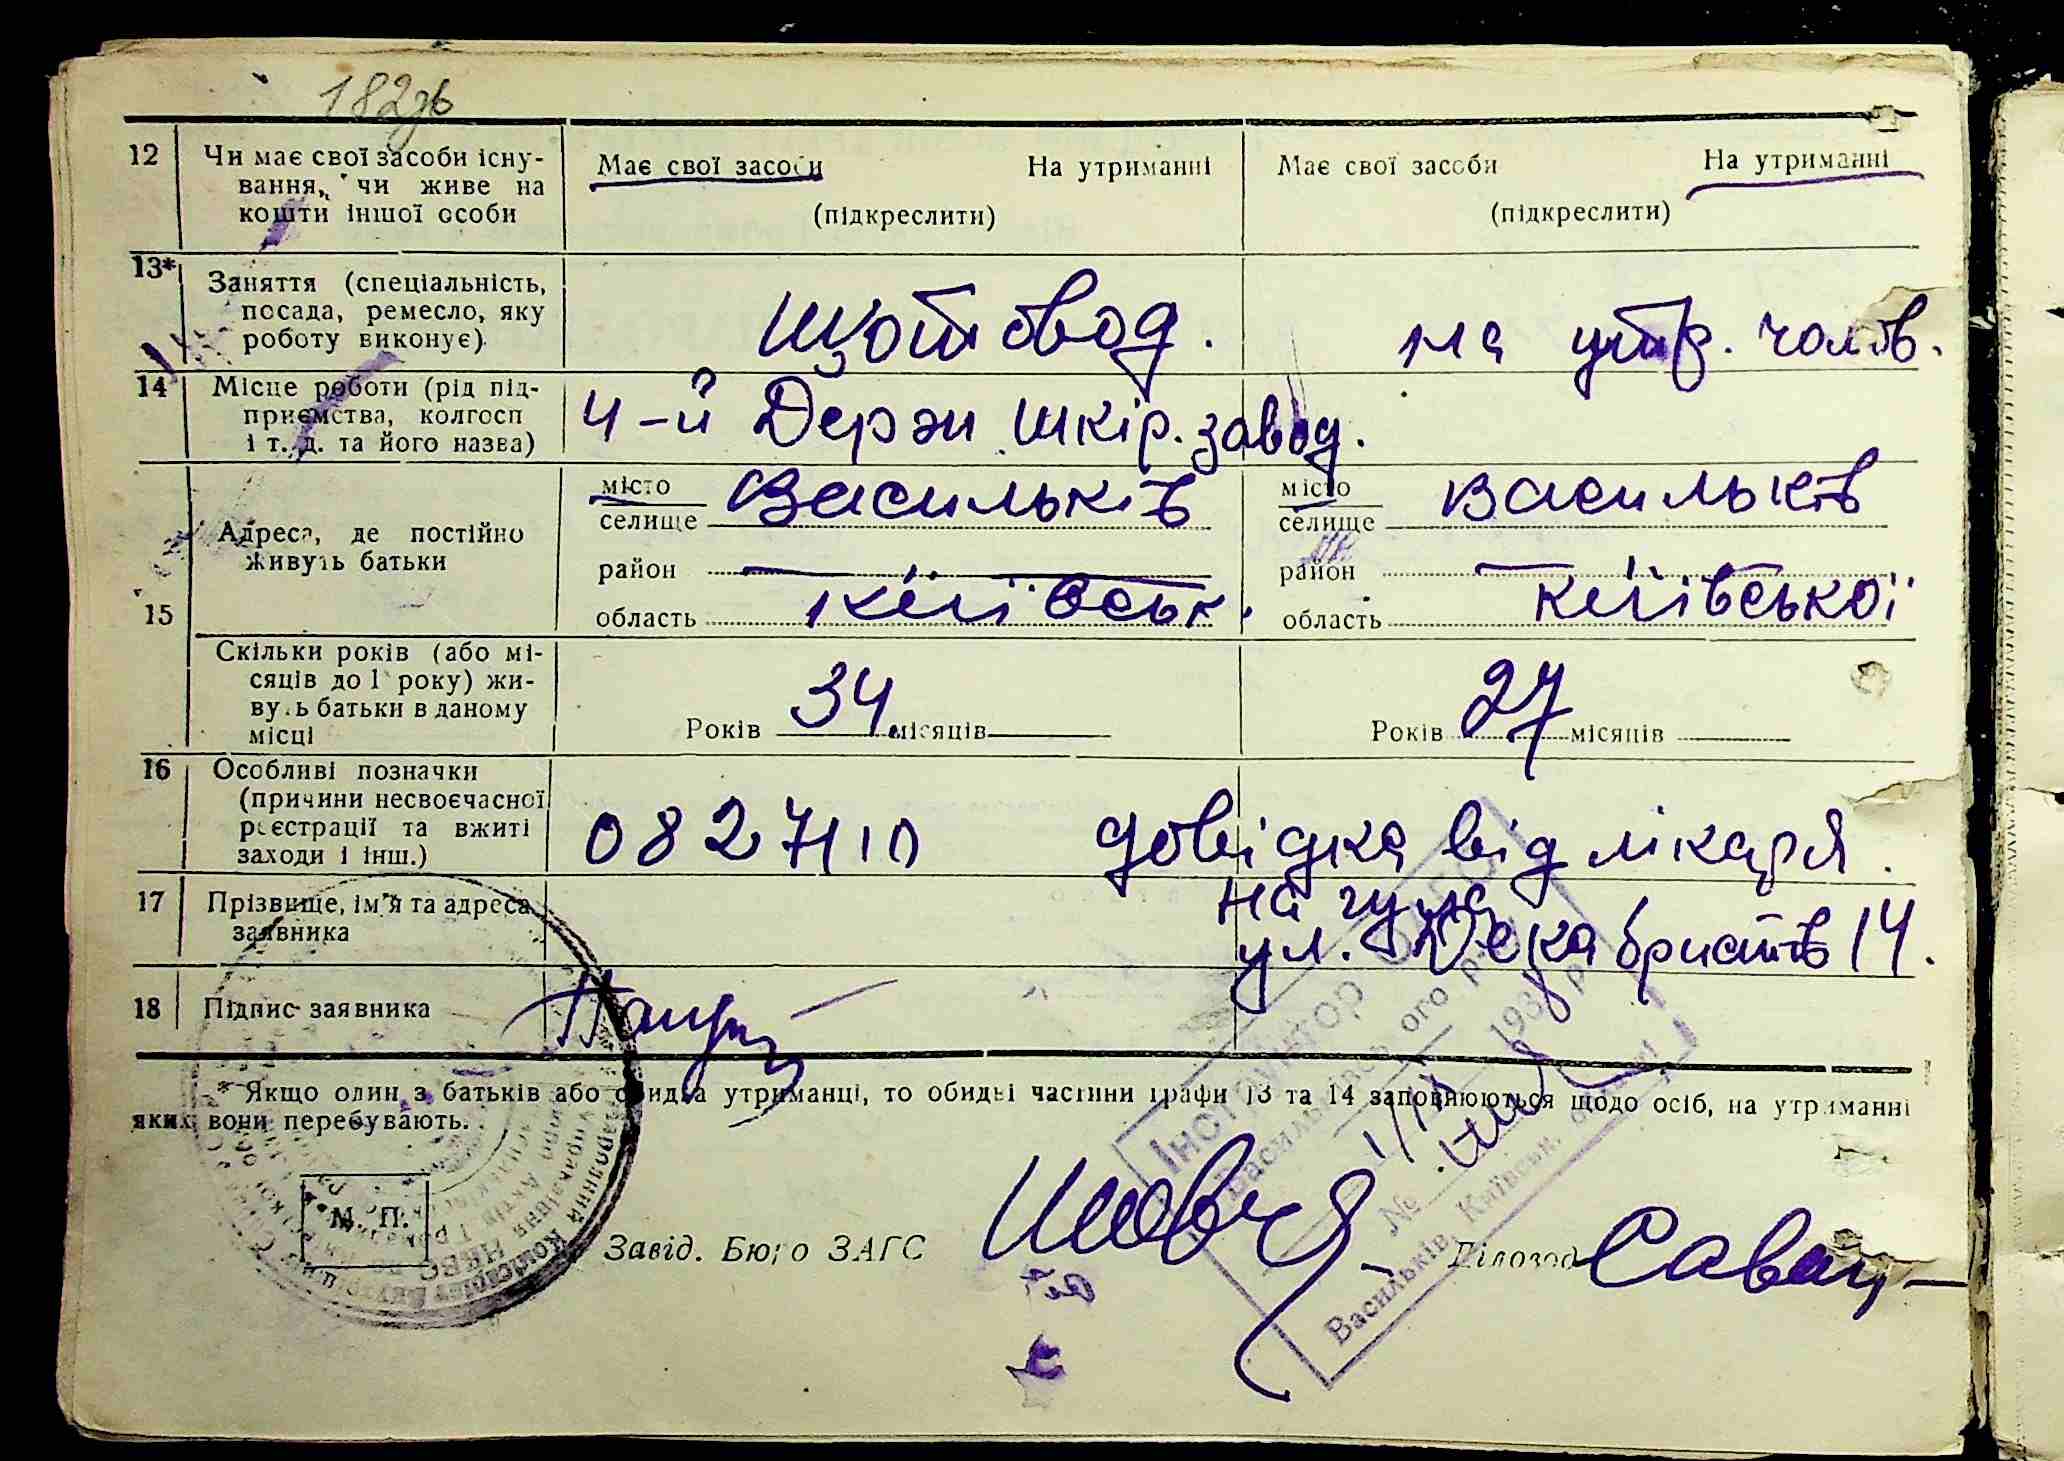 182зв
12 Чи має свої засоби існу- Має свої засоби На утриманні Має свої засоби На утриманні
вання, чи живе на
кошти іншої особи (підкреслити) (підкреслити)
13* Заняття (спеціальність,
посада, ремесло, яку Щотовод. на утр. чолов.
роботу виконує)
14 Місце роботи (рід під-
приємства, колгосп 4-й Держ шкір. завод.
і т. д. та його назва)
15 Адреса, де постійно
живуть батьки
місто Васильків місто Васильків
селище селище
район — район —
область Київськ. область Київської
Скільки років (або мі-
сяців до 1 року) жи-
вуть батьки в даному
місці Років 34 місяців Років 27 місяців
16 Особливі позначки
(причини несвоєчасної
реєстрації та вжиті 082710 довідка від лікаря.
заходи і інш.)
17 Прізвище, ім'я та адреса на
заявника ул. Декабристів 14.
18 Підпис заявника
* Якщо один з батьків або обидва утриманці, то обидві частини графи 13 та 14 заповнюються щодо осіб, на утриманні
яких вони перебувають.
М. П.
Завід. Бюро ЗАГС Діловод
Інструктор ОАГС
Васильківського р-ну
193 р.
№
Васильків, Київськ. області